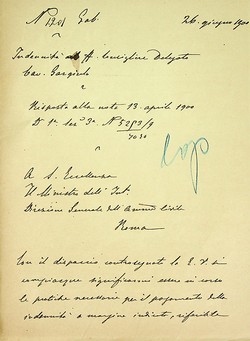 N 1701 Gab. 26. giugno 1900
Indennità al ff Consigliere Delegato
Cav. Gargiulo
Risposta alla nota 13 aprile 1900
D 1ª Sez 3ª N 5253/9
7030
A S. Eccellenza
Il Ministro dell' Int.
Direzione Generale dell' Ammne Civile
Roma
Con il dispaccio contrassegnato la E. V. si
compiacque significarmi essere in corso
le pratiche necessarie per il pagamento della
indennità a margine indicata, riferibile